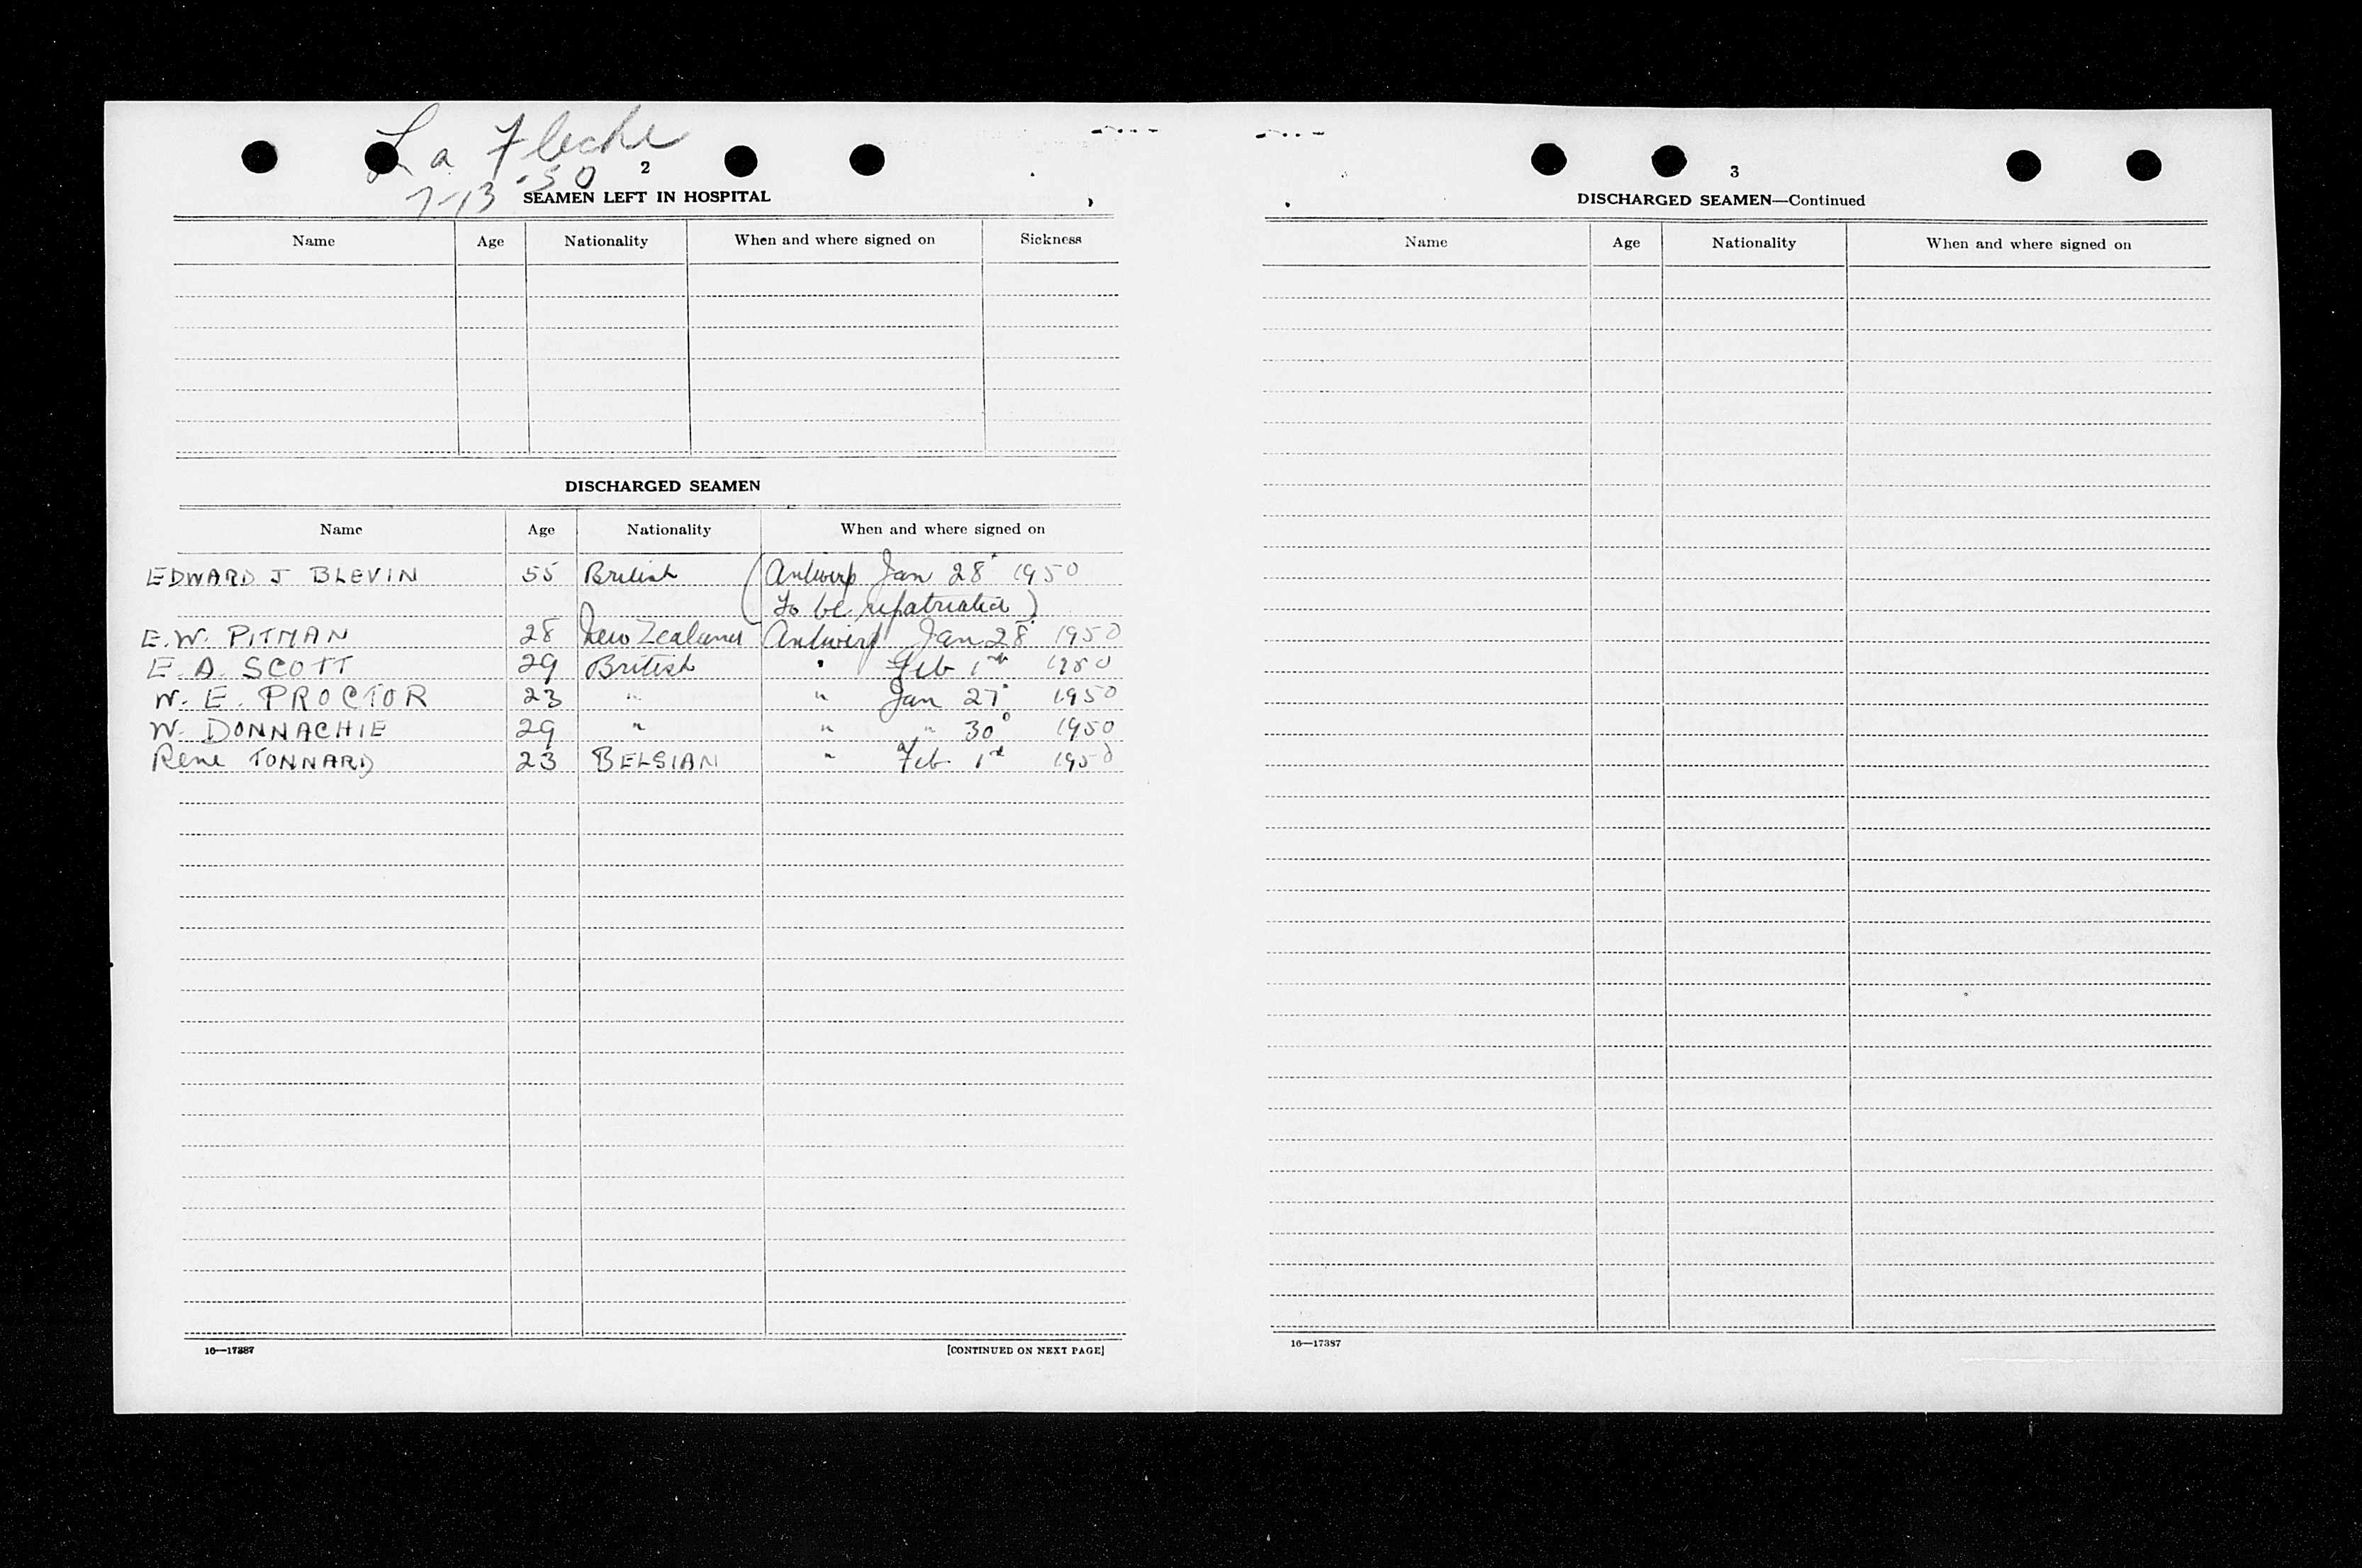 La Fleche
7-13-50
2
SEAMEN LEFT IN HOSPITAL
Name Age Nationality When and where signed on Sickness
DISCHARGED SEAMEN
Name Age Nationality When and where signed on
EDWARD J BLEVIN 55 British (Antwerp Jan 28 1950
to be repatriated)
E.W. PITMAN 28 New Zealand Antwerp Jan 28 1950
E.A. SCOTT 29 British " Feb 1st 1950
W.E. PROCTOR 23 " " Jan 27 1950
W. DONNACHIE 29 " " " 30 1950
Rene TONNARD 23 BELGIAN " Feb 1st 1950
16—17387
[CONTINUED ON NEXT PAGE]
3
DISCHARGED SEAMEN—Continued
Name Age Nationality When and where signed on
16—17387